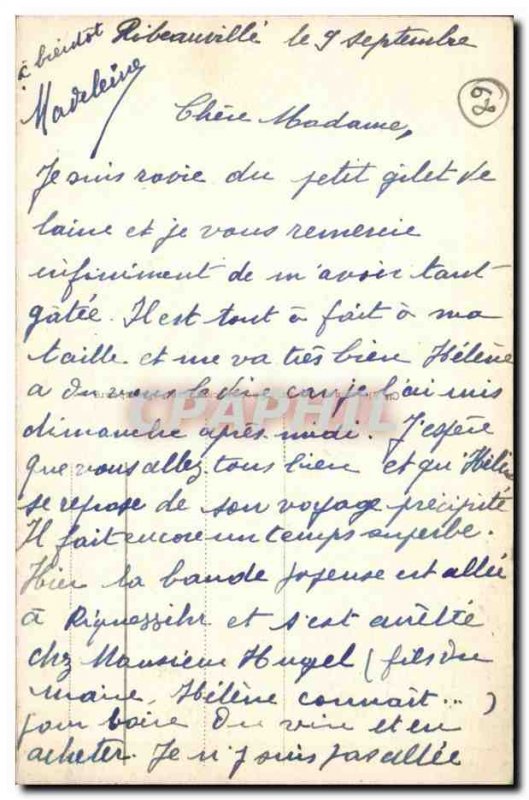 à bientôt Ribeauvillé le 9 septembre
Madeleine
68
Chère Madame,
Je suis ravie du petit gilet de
laine et je vous remercie
infiniment de m'avoir tant
gâtée. Il est tout à fait à ma
taille et me va très bien Hélène
a dû vous le dire car je l'ai mis
CPAPHIL
dimanche après-midi. J'espère
que vous allez tous bien et qu'Hélène
se repose de son voyage précipité
Il fait encore un temps superbe.
Hier la bande joyeuse est allée
à Riquewihr et s'est arrêtée
chez Monsieur Hugel (fils du
maire, Hélène connaît...)
pour boire du vin et en
acheter. Je n'y suis pas allée